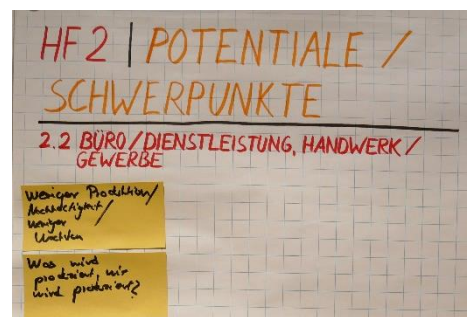 HF2 | POTENTIALE /
SCHWERPUNKTE
2.2 BÜRO/DIENSTLEISTUNG, HANDWERK/
GEWERBE
Weniger Produktion/
Nachhaltigkeit/
weniger
Was wird
produziert, wir
wird produziert?